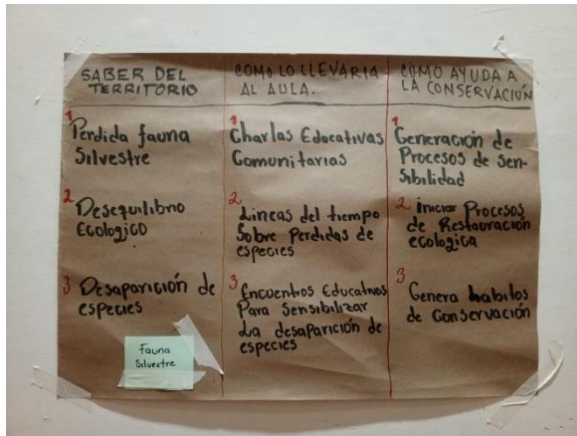 SABER DEL
TERRITORIO
COMO LO LLEVARIA
AL AULA.
CÓMO AYUDA A
LA CONSERVACIÓN
1
Perdida fauna
Silvestre
1
Charlas Educativas
Comunitarias
1
Generación de
Procesos de Sen-
Sibilidad
2
Desequilibrio
Ecologico
2
Lineas del tiempo
Sobre Perdidas de
especies
2 iniciar Procesos
de Restauración
ecologica
3 Desaparición de
especies
3
Encuentros Educativos
Para Sensibilizar
La desaparición de
especies
3
Genera habitos
de Conservación
Fauna
Silvestre